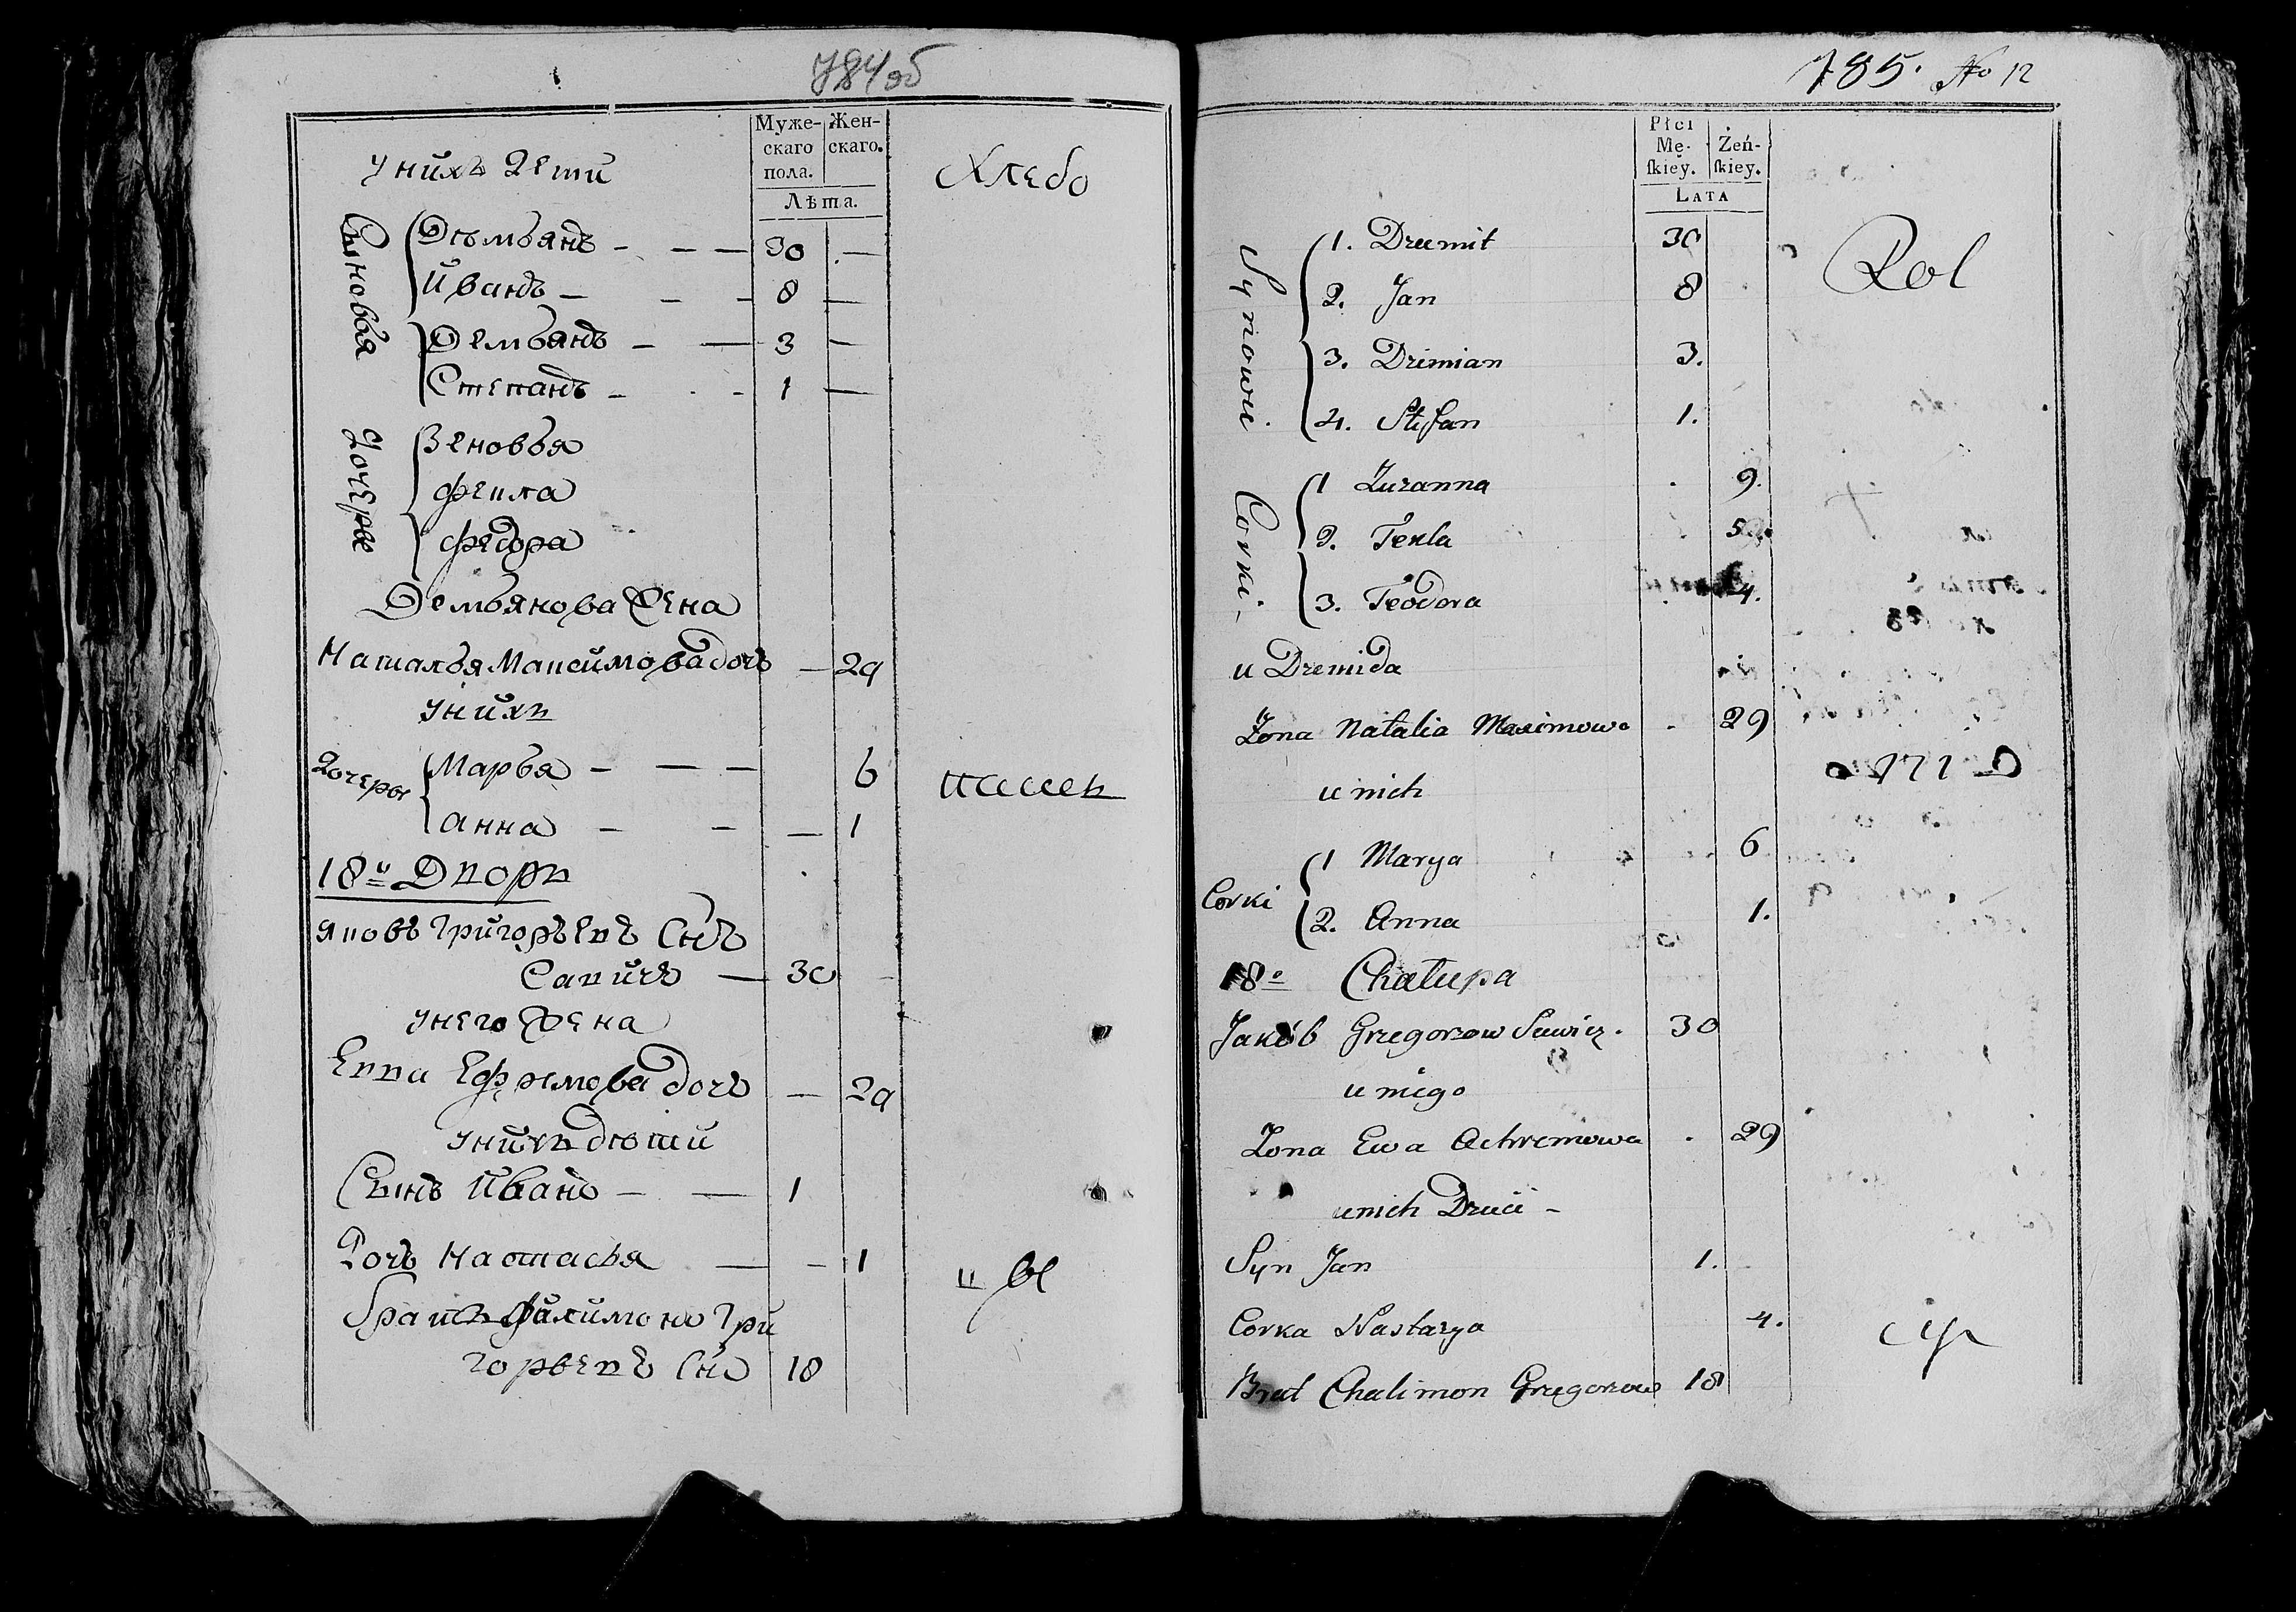 784об
Муже-
скаго
пола.
Жен-
скаго.
Лѣта.
у нихъ дети
Хлебо
Сыновья
Дѣмьянъ - - - 30 -
Иванъ - - - 8 -
Демьянъ - - 3 -
Степанъ - - - 1 -
Дочеры
Зеновья
Фекла
Федора
Демьянова жена
Наталья Максимова дочь - 29
у нихъ
Дочеры
Марья - - - 6
Анна - - - 1
пашец
18й Дворъ
Яковъ Григорьевъ Снъ
Савичъ - 30 -
у него жена
Евва Ефремова дочь - 29
у нихъ дѣти
Сынъ Иванъ - - 1
Дочь Настасья - - 1
ы
Братъ Филимонъ Гри
горьевъ Снъ 18
785. No 12
Płci
Mę-
skiey.
Żeń-
skiey.
LATA
Rol
Synowie
1. Dzemit 30
2. Jan 8
3. Dzimian 3.
4. Stefan 1.
Corki
1 Zuzanna . 9.
2. Tekla 5.
3. Teodora 4.
u Dzemida
Żona Natalia Maximowa . 29
u nich
Corki
1 Marya 6
2. Anna 1.
18o Chałupa
Jakób Grzegorzow Sawicz. 30
u niego
Żona Ewa Achremowa . 29
u nich Dzieci -
Syn Jan 1.
Corka Nastazya 4.
cy
Brat Chalimon Grzegorzow 18